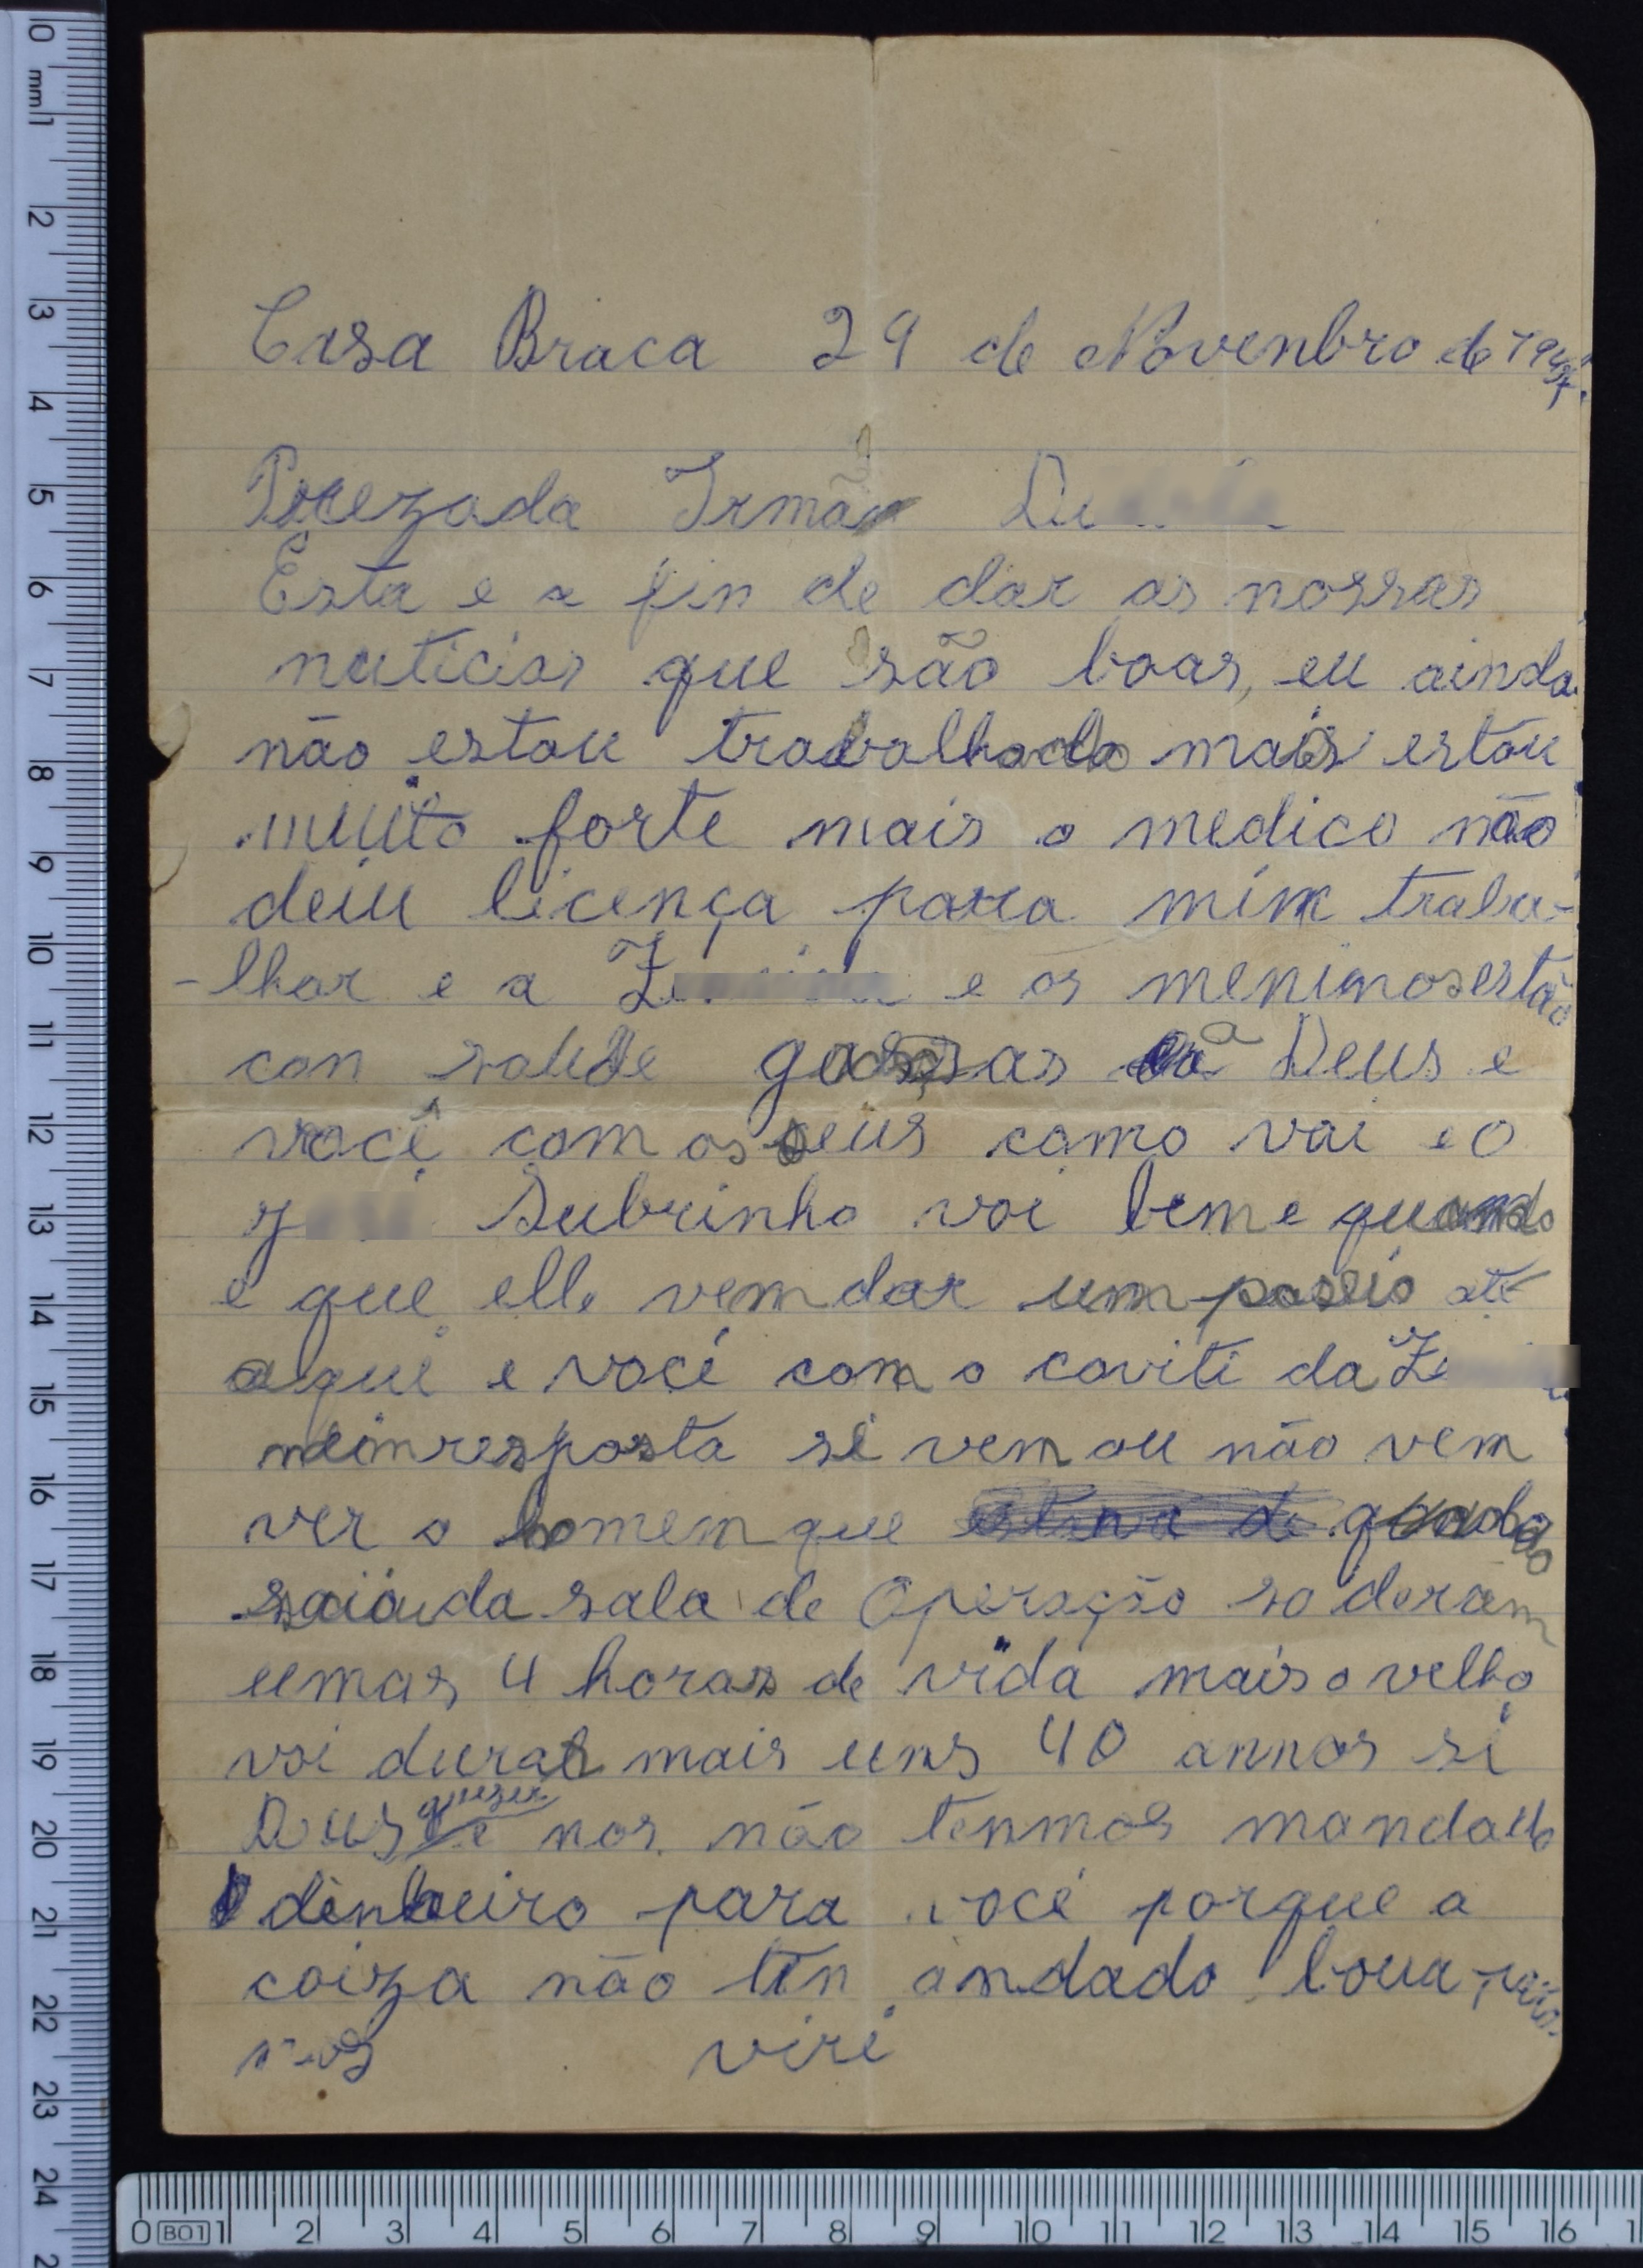 Casa Braca 29 de Novenbro de
Prezada Irmã
Esta e a fin de dar as nossas
nuticias que são boas, eu ainda
não estou trabalhado mais estou
muito forte mais o medico não
deiu licença para mim traba-
-lhar e a e os meninos estão
con saude a Deus e
você com os seus como vai e o
Subrinho vai bem e quando
e que elle vem dar um paseio até
aqui e você com o coviti da
resposta si vem ou não vem
ver o homem que
da sala de Operação so deram
umas 4 horas de vida mais o velho
vai durar mais uns 40 annos si
Deus quezer e nos não tenmos mandado
dinheiro para você porque a
coiza não ten andado boua
viri